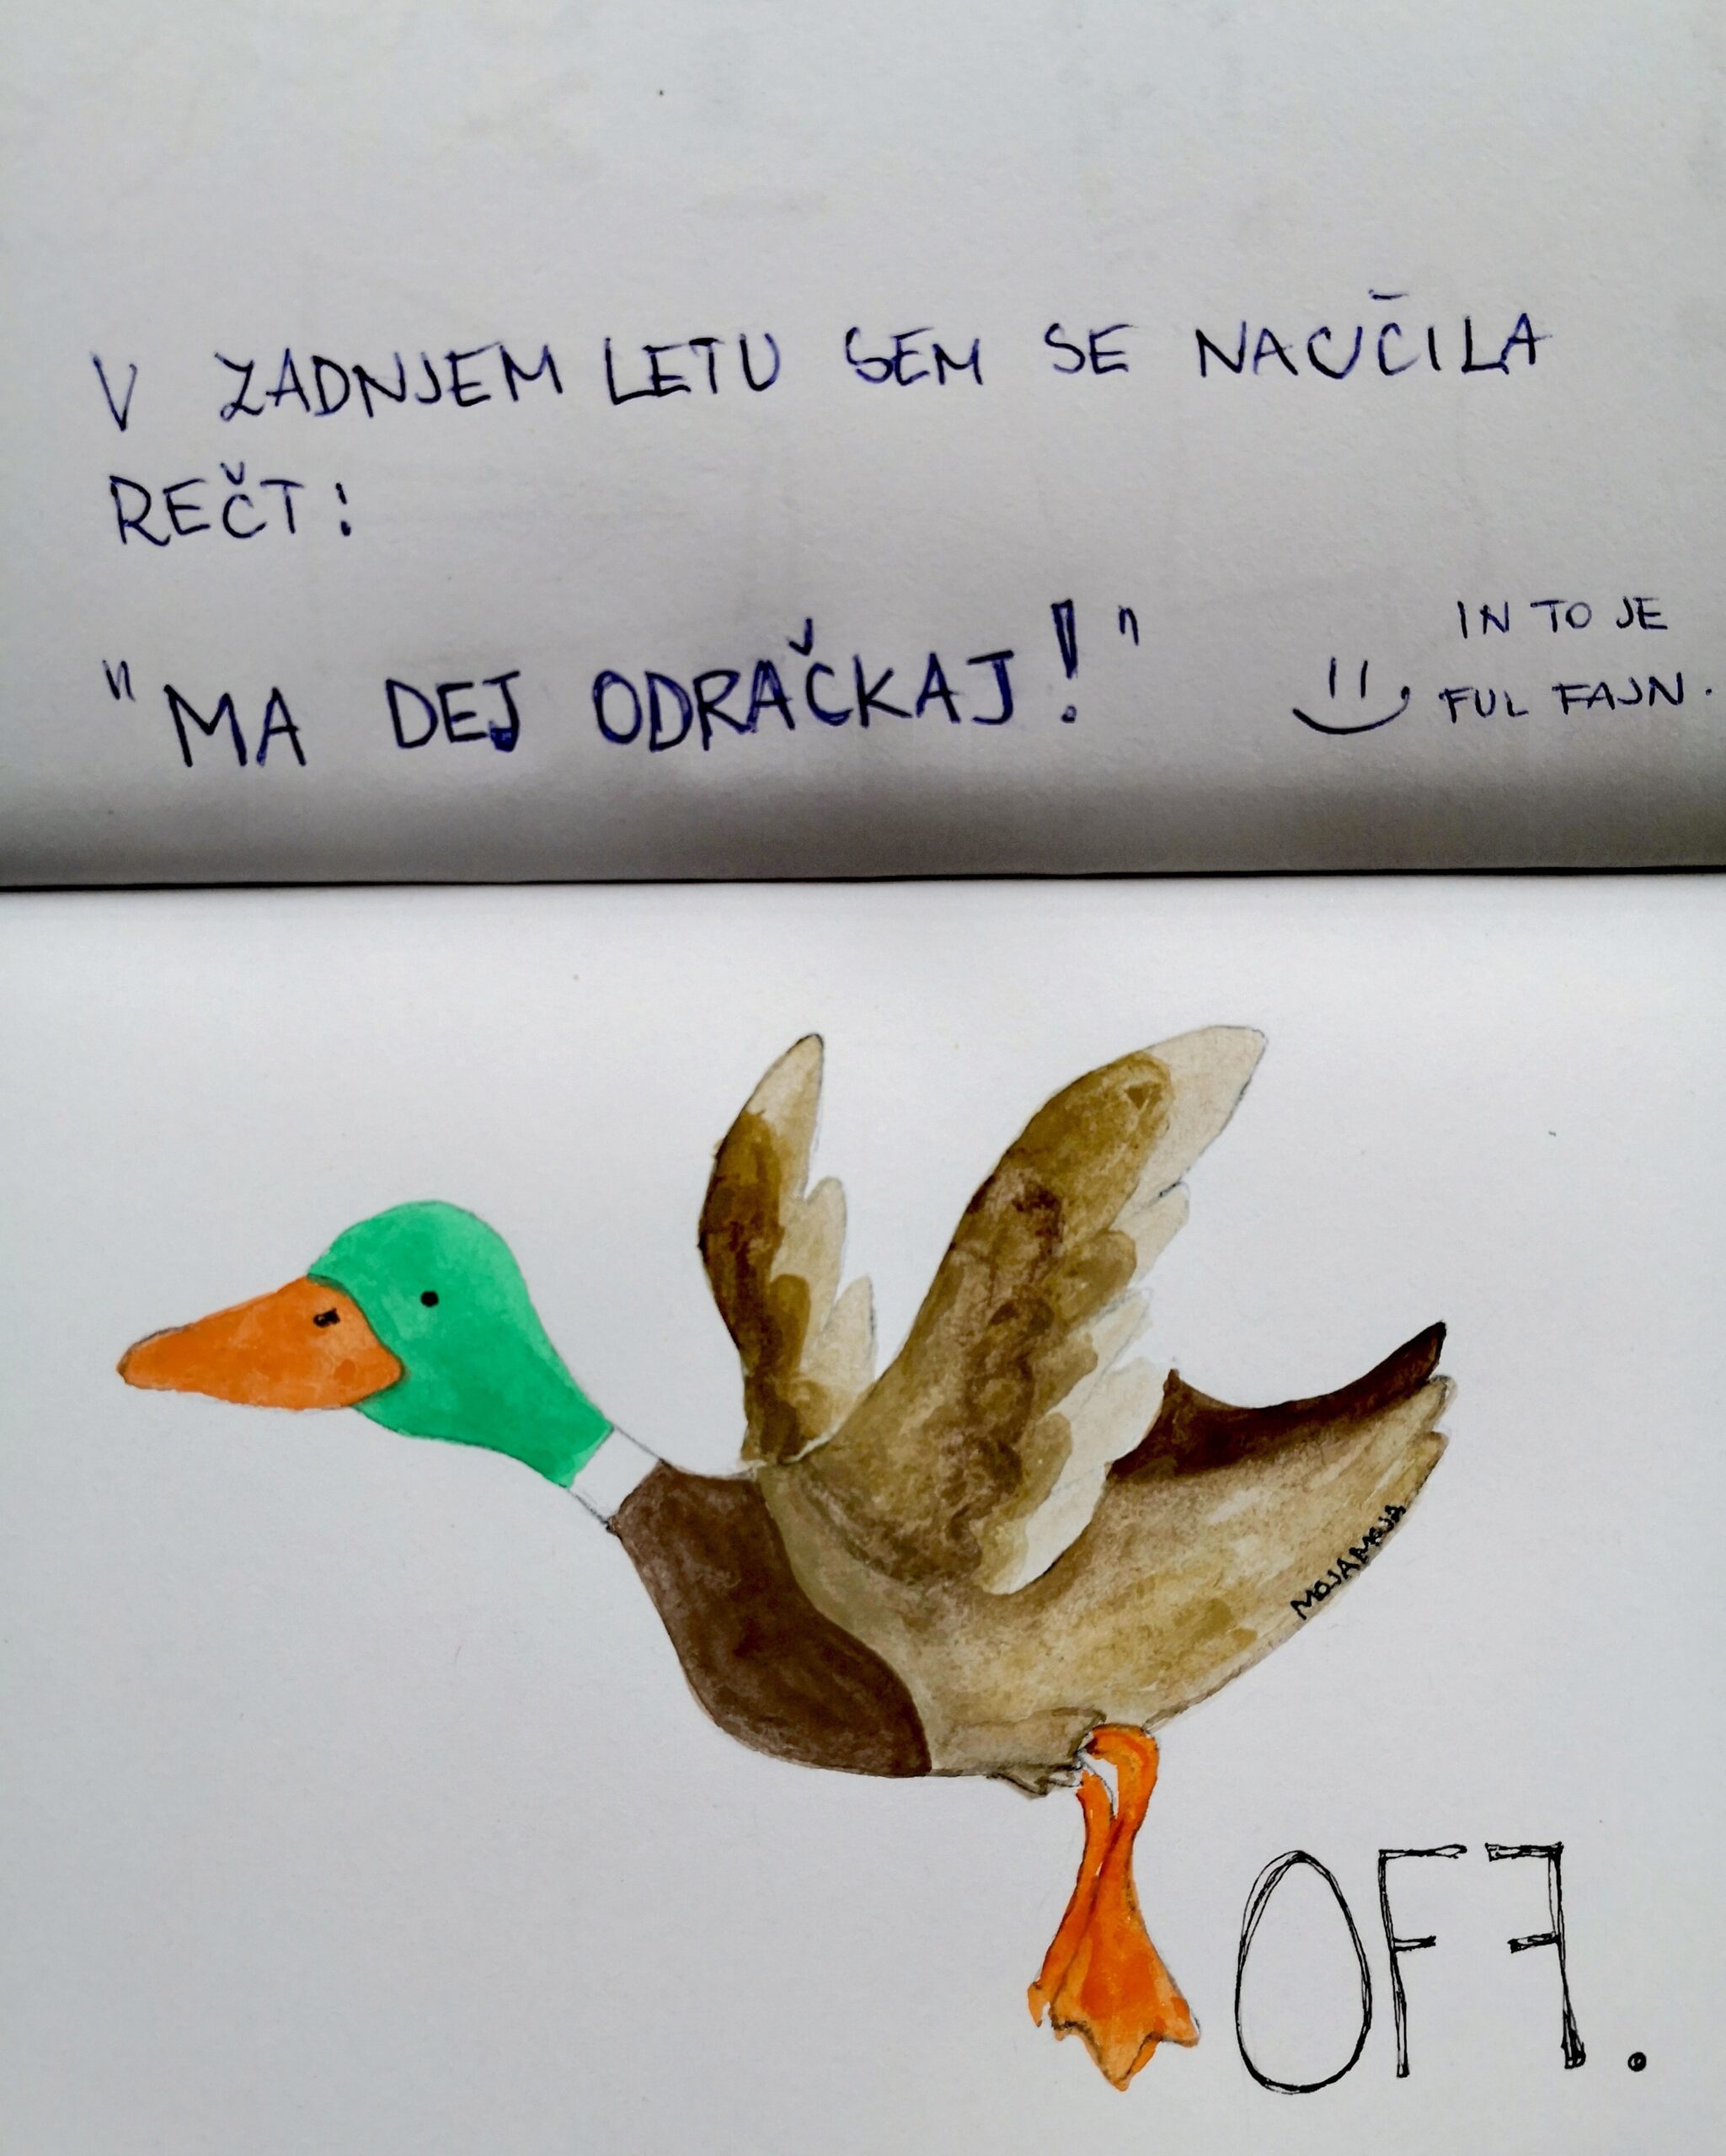 V ZADNJEM LETU SEM SE NAUČILA
REČT:
"MA DEJ ODRAČKAJ!"
IN TO JE
:) FUL FAJN.
MOJAMOJA
OFF.